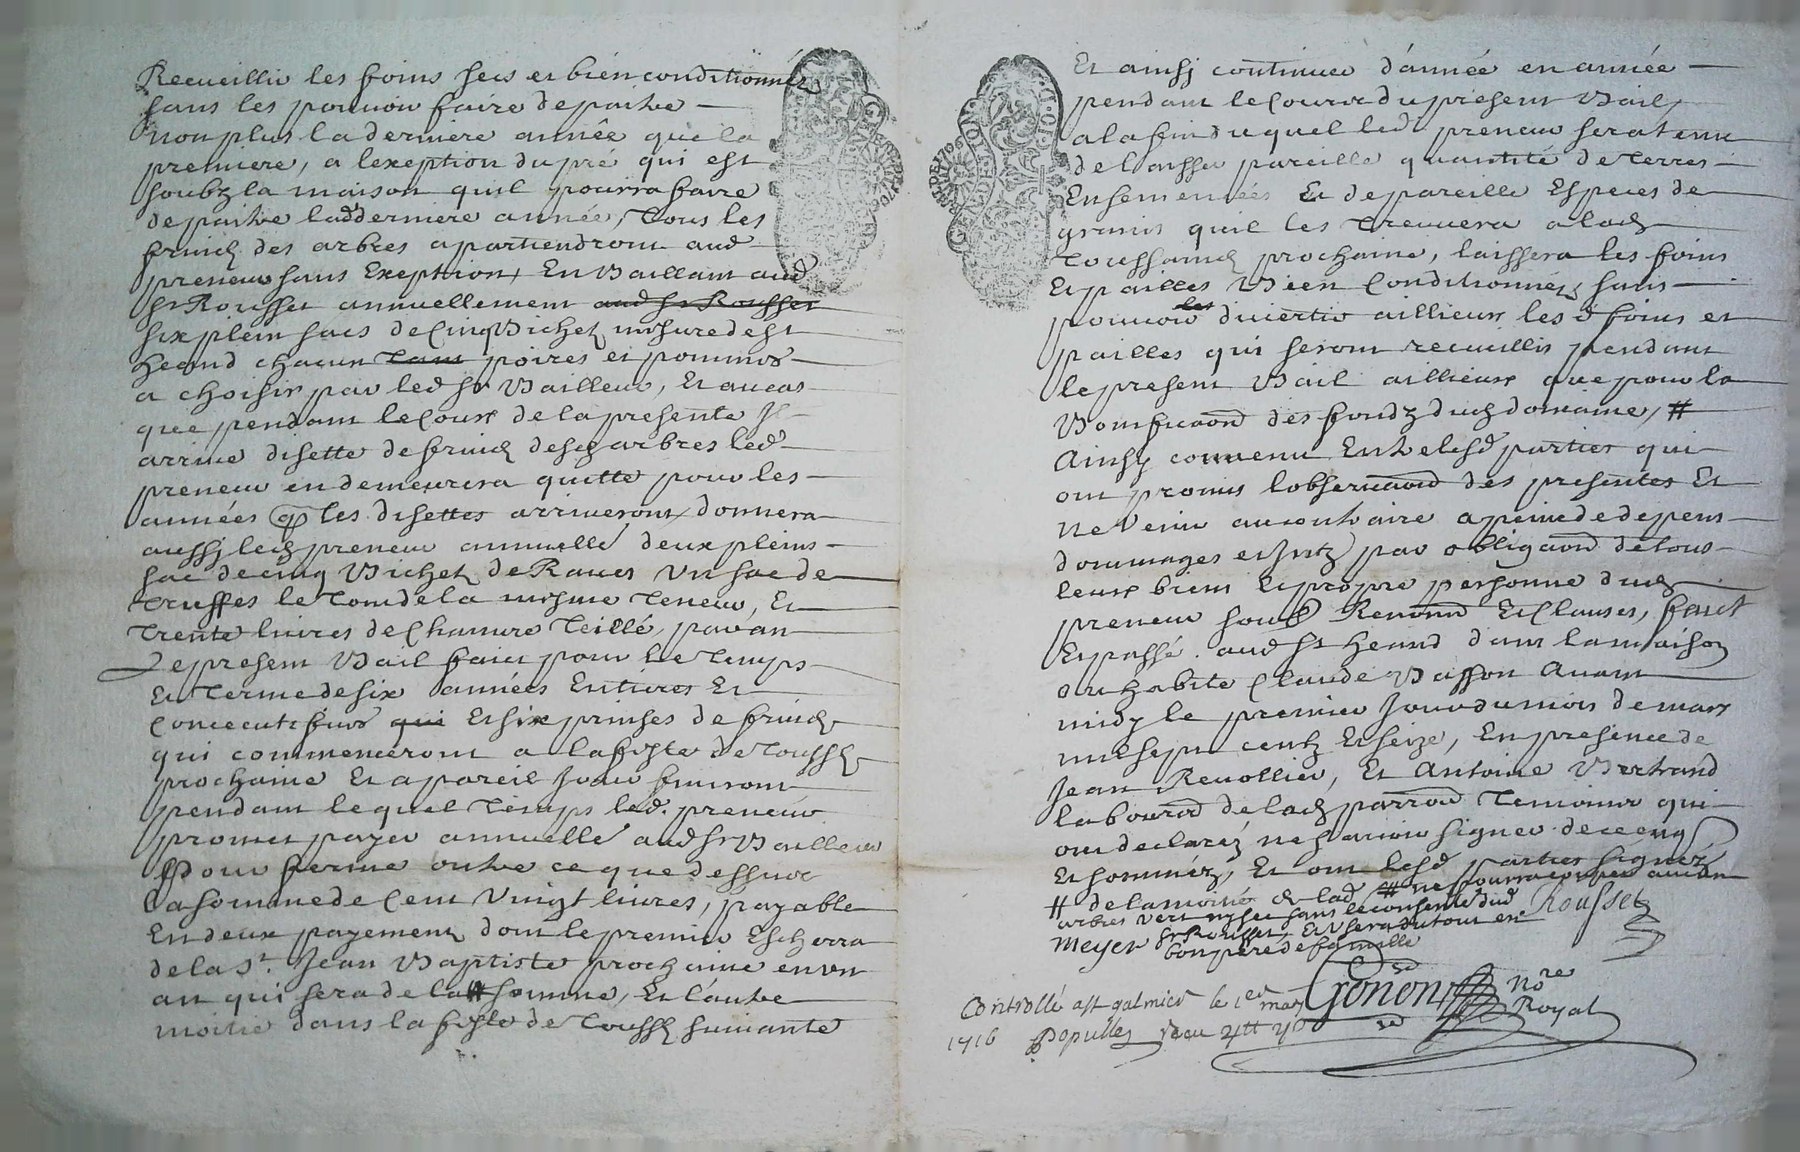 Recueillir les foins secs et bien conditionnéz
sans les pouvoir faire depaitre
non plus la derniere année que la
premiere, a lexeption du pré qui est
soubz la maison quil pourra faire
depaitre lad derniere année, Tous les
fruicts des arbres apartiendront aud
preneur sans Exeption, En Baillant aud
sr Rousset annuellement aud sr Rousset
six plein sacs de Cinq Bichetz mesure de st
heand chacun Tant poires et pommes
a choisir par led sr Bailleur, Et au cas
que pendant le Cours de la presente Il
arrive disette de fruicts desd arbres led
preneur en demeurera quitte pour les
années q les disettes arriveront, donnera
aussy led preneur annuelle deux pleins
sac de cinq Bichetz de Raves Un sac de
Truffes le Tout de la mesme Teneur, Et
Trente livres de Chanvre Teillé, par an
Le present Bail faict pour Le Temps
Et Terme de six années Entieres Et
Concecutifves qui Et six prinses de fruicts
qui commenceront a la feste de Toussts
prochaine Et a pareil Jour finiront
pendant lequel Temps led. preneur
promet payer annuelle aud sr Bailleur
Pour ferme outre ce que dessus
La somme de Cent Vingt livres, payable
En deux payements dont le premier Escherra
de la St. Jean Baptiste prochaine en un
an qui sera de la # somme, Et l'autre
moitié dans la feste de Toussts suivante
Et ainsy continuer d'année en année
pendant le Cours du present Bail,
a la fin duquel led preneur sera tenu
de laisser pareille quantité de Terres
Ensemencées Et de pareille Especes de
grains quil les Treuvera a lad
Toussaincts prochaine, laissera les foins
Et pailles Bien Conditionnéz sans
pouvoir les divertir aillieurs les d foins et
pailles qui seront recueillis pendant
le present Bail aillieurs que pour la
Bonificaon des fondz dud domaine, #
Ainsy convenu Entre lesd parties qui
ont promis lobservaon des presentes Et
ne Venir au contraire a peine de depens
dommages et Intz par obligaon de tous
leurs biens Et propre personne dud
preneur soub Renonn Et Clauses, faict
Et passé aud st heand dans la maison
ou habite Claude Basson Avant
midy le premier Jour du mois de mars
mil sept centz Et seize, En presence de
Jean Revollier, Et Antoine Bertrand
labour de lad parroi Temoins qui
ont declaréz ne scavoir signer de ce enq
Et somméz, Et ont lesd parties signéz
# de la moitié de lad # ne pourra couper aucun
arbres vert ny sec sans le consente dud
sr Rousset, Et usera du tout en
bon pere de famille
Meyer Rousset
Gonon Nore Royal
Controllé a st galmier le 1er mars
1716 Populles